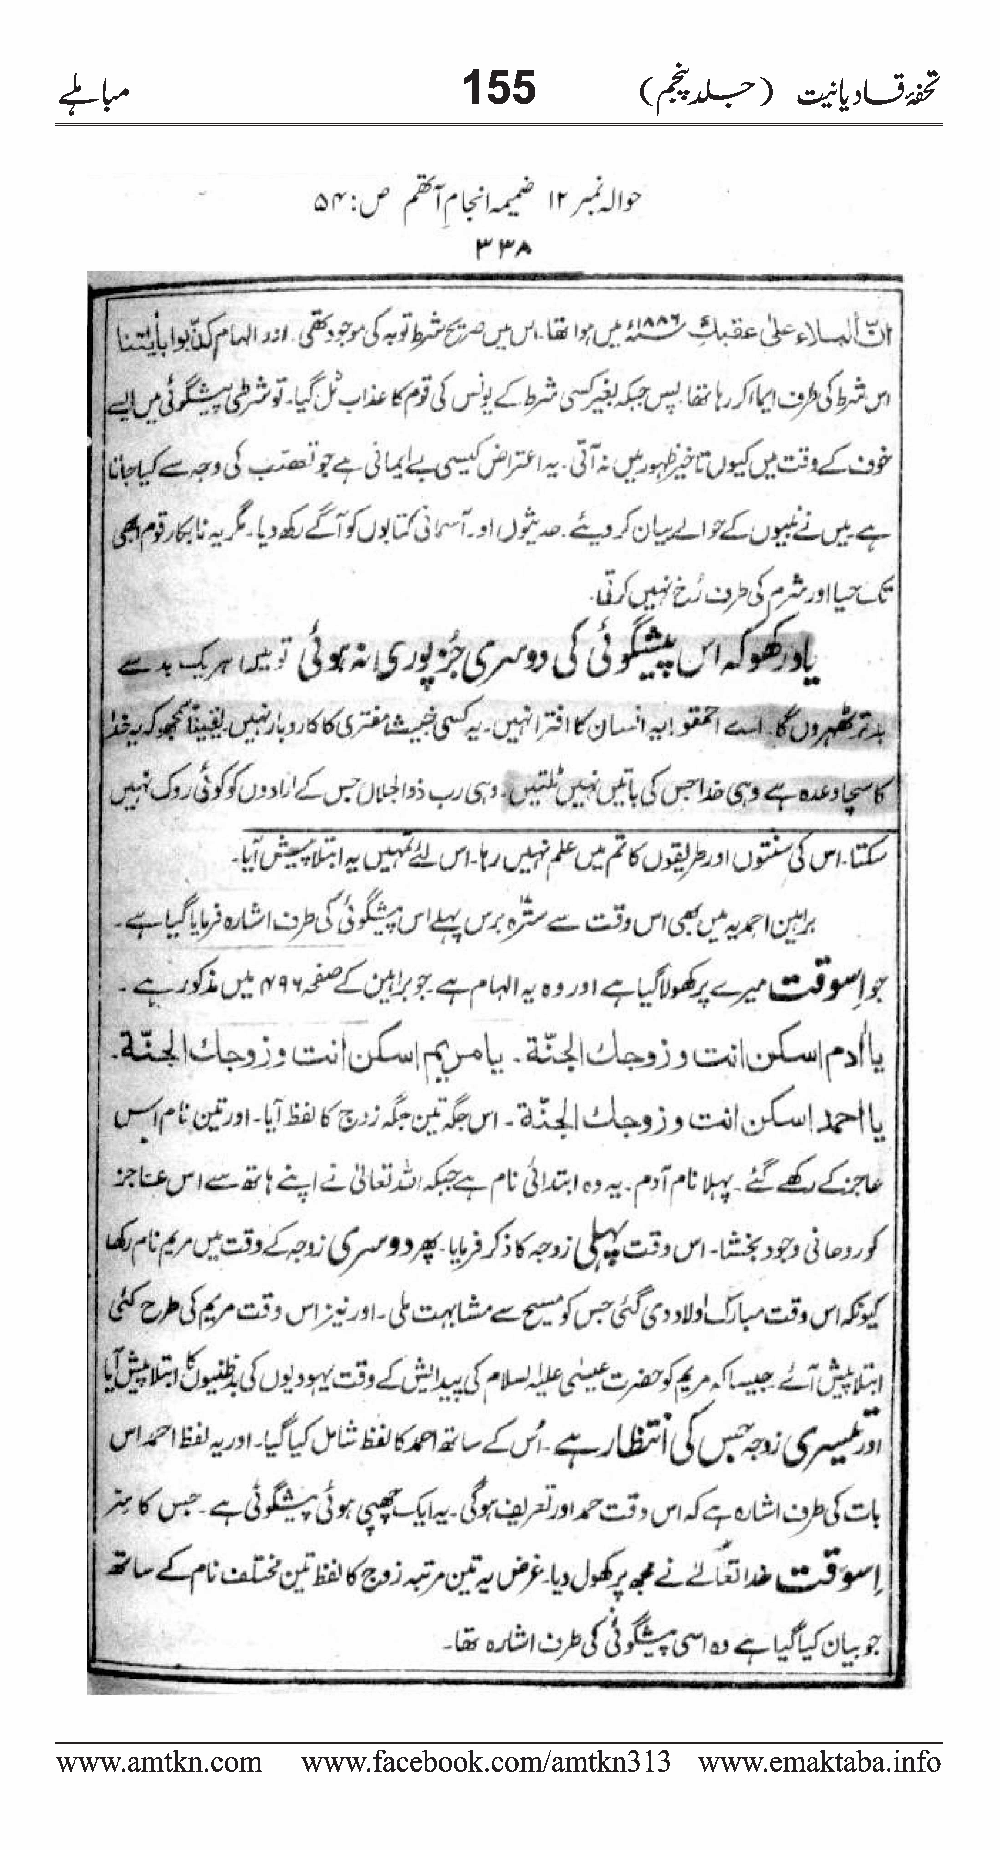 تحفۂ قادیانیت (جلد پنجم)
155
مباہلے
حوالہ نمبر ۱۲ ضمیمہ انجامِ آتھم ص: ۵۴
۳۳۸
انّ البلاء علیٰ عقبكِ ۱۸۸۶ء میں ہوا تھا۔ اس میں صریح شرط توبہ کی موجود تھی۔ اور الہام کذّبوا بأیٰتنا
اس شرط کی طرف ایما کر رہا تھا۔ پس جبکہ بغیر کسی شرط کے یونس کی قوم کا عذاب ٹل گیا۔ تو شرطی پیشگوئی میں ایسے
خوف کے وقت میں کیوں تاخیر ظہور میں نہ آتی۔ یہ اعتراض کیسی بے ایمانی ہے جو تعصّب کی وجہ سے کیا جاتا
ہے۔ میں نے نبیوں کے حوالے بیان کر دیئے۔ حدیثوں اور آسمانی کتابوں کو آگے رکھ دیا۔ مگر یہ نابکار قوم ابھی
تک حیا اور شرم کی طرف رُخ نہیں کرتی۔
یاد رکھو کہ اس پیشگوئی کی دوسری جُز پوری نہ ہوئی تو میں ہر یک بد سے
بدتر ٹھہروں گا۔ اے احمقو! یہ انسان کا افترا نہیں۔ یہ کسی خبیث مفتری کا کاروبار نہیں۔ یقیناً سمجھو کہ یہ خدا
کا سچا وعدہ ہے وہی خدا جس کی باتیں نہیں ٹلتیں۔ وہی رب ذوالجلال جس کے ارادوں کو کوئی روک نہیں
سکتا۔ اس کی سنتوں اور طریقوں کا تم میں علم نہیں رہا۔ اس لئے تمہیں یہ ابتلا پیش آیا۔
براہین احمدیہ میں بھی اس وقت سے سترہ برس پہلے اس پیشگوئی کی طرف اشارہ فرمایا گیا ہے۔
جو اِسوقت میرے پر کھولا گیا ہے اور وہ یہ الہام ہے جو براہین کے صفحہ ۴۹۶ میں مذکور ہے۔
یا اٰدم اسكن انت و زوجك الجنّة۔ یا مریم اسكن انت و زوجك الجنّة۔
یا احمد اسكن انت و زوجك الجنّة۔ اس جگہ تین جگہ زوج کا لفظ آیا۔ اور تین نام اس
عاجز کے رکھے گئے۔ پہلا نام آدم۔ یہ وہ ابتدائی نام ہے جبکہ اللہ تعالیٰ نے اپنے ہاتھ سے اس عاجز
کو روحانی وجود بخشا۔ اس وقت پہلی زوجہ کا ذکر فرمایا۔ پھر دوسری زوجہ کے وقت میں مریم نام رکھا
کیونکہ اس وقت مبارک اولاد دی گئی جس کو مسیح سے مشابہت ملی۔ اور نیز اس وقت مریم کی طرح کئی
ابتلا پیش آئے۔ جیسا کہ مریم کو حضرت عیسیٰ علیہ السلام کی پیدایش کے وقت یہودیوں کی بدظنیوں کا ابتلا پیش آیا
اور تیسری زوجہ جس کی انتظار ہے۔ اُس کے ساتھ احمد کا لفظ شامل کیا گیا۔ اور یہ لفظ احمد اس
بات کی طرف اشارہ ہے کہ اس وقت حمد اور تعریف ہوگی۔ یہ ایک چھپی ہوئی پیشگوئی ہے۔ جس کا سر
اِسوقت خدا تعالےٰ نے مجھ پر کھول دیا۔ غرض یہ تین مرتبہ زوج کا لفظ تین مختلف نام کے ساتھ
جو بیان کیا گیا ہے وہ اسی پیشگوئی کی طرف اشارہ تھا۔
www.amtkn.com www.facebook.com/amtkn313 www.emaktaba.info